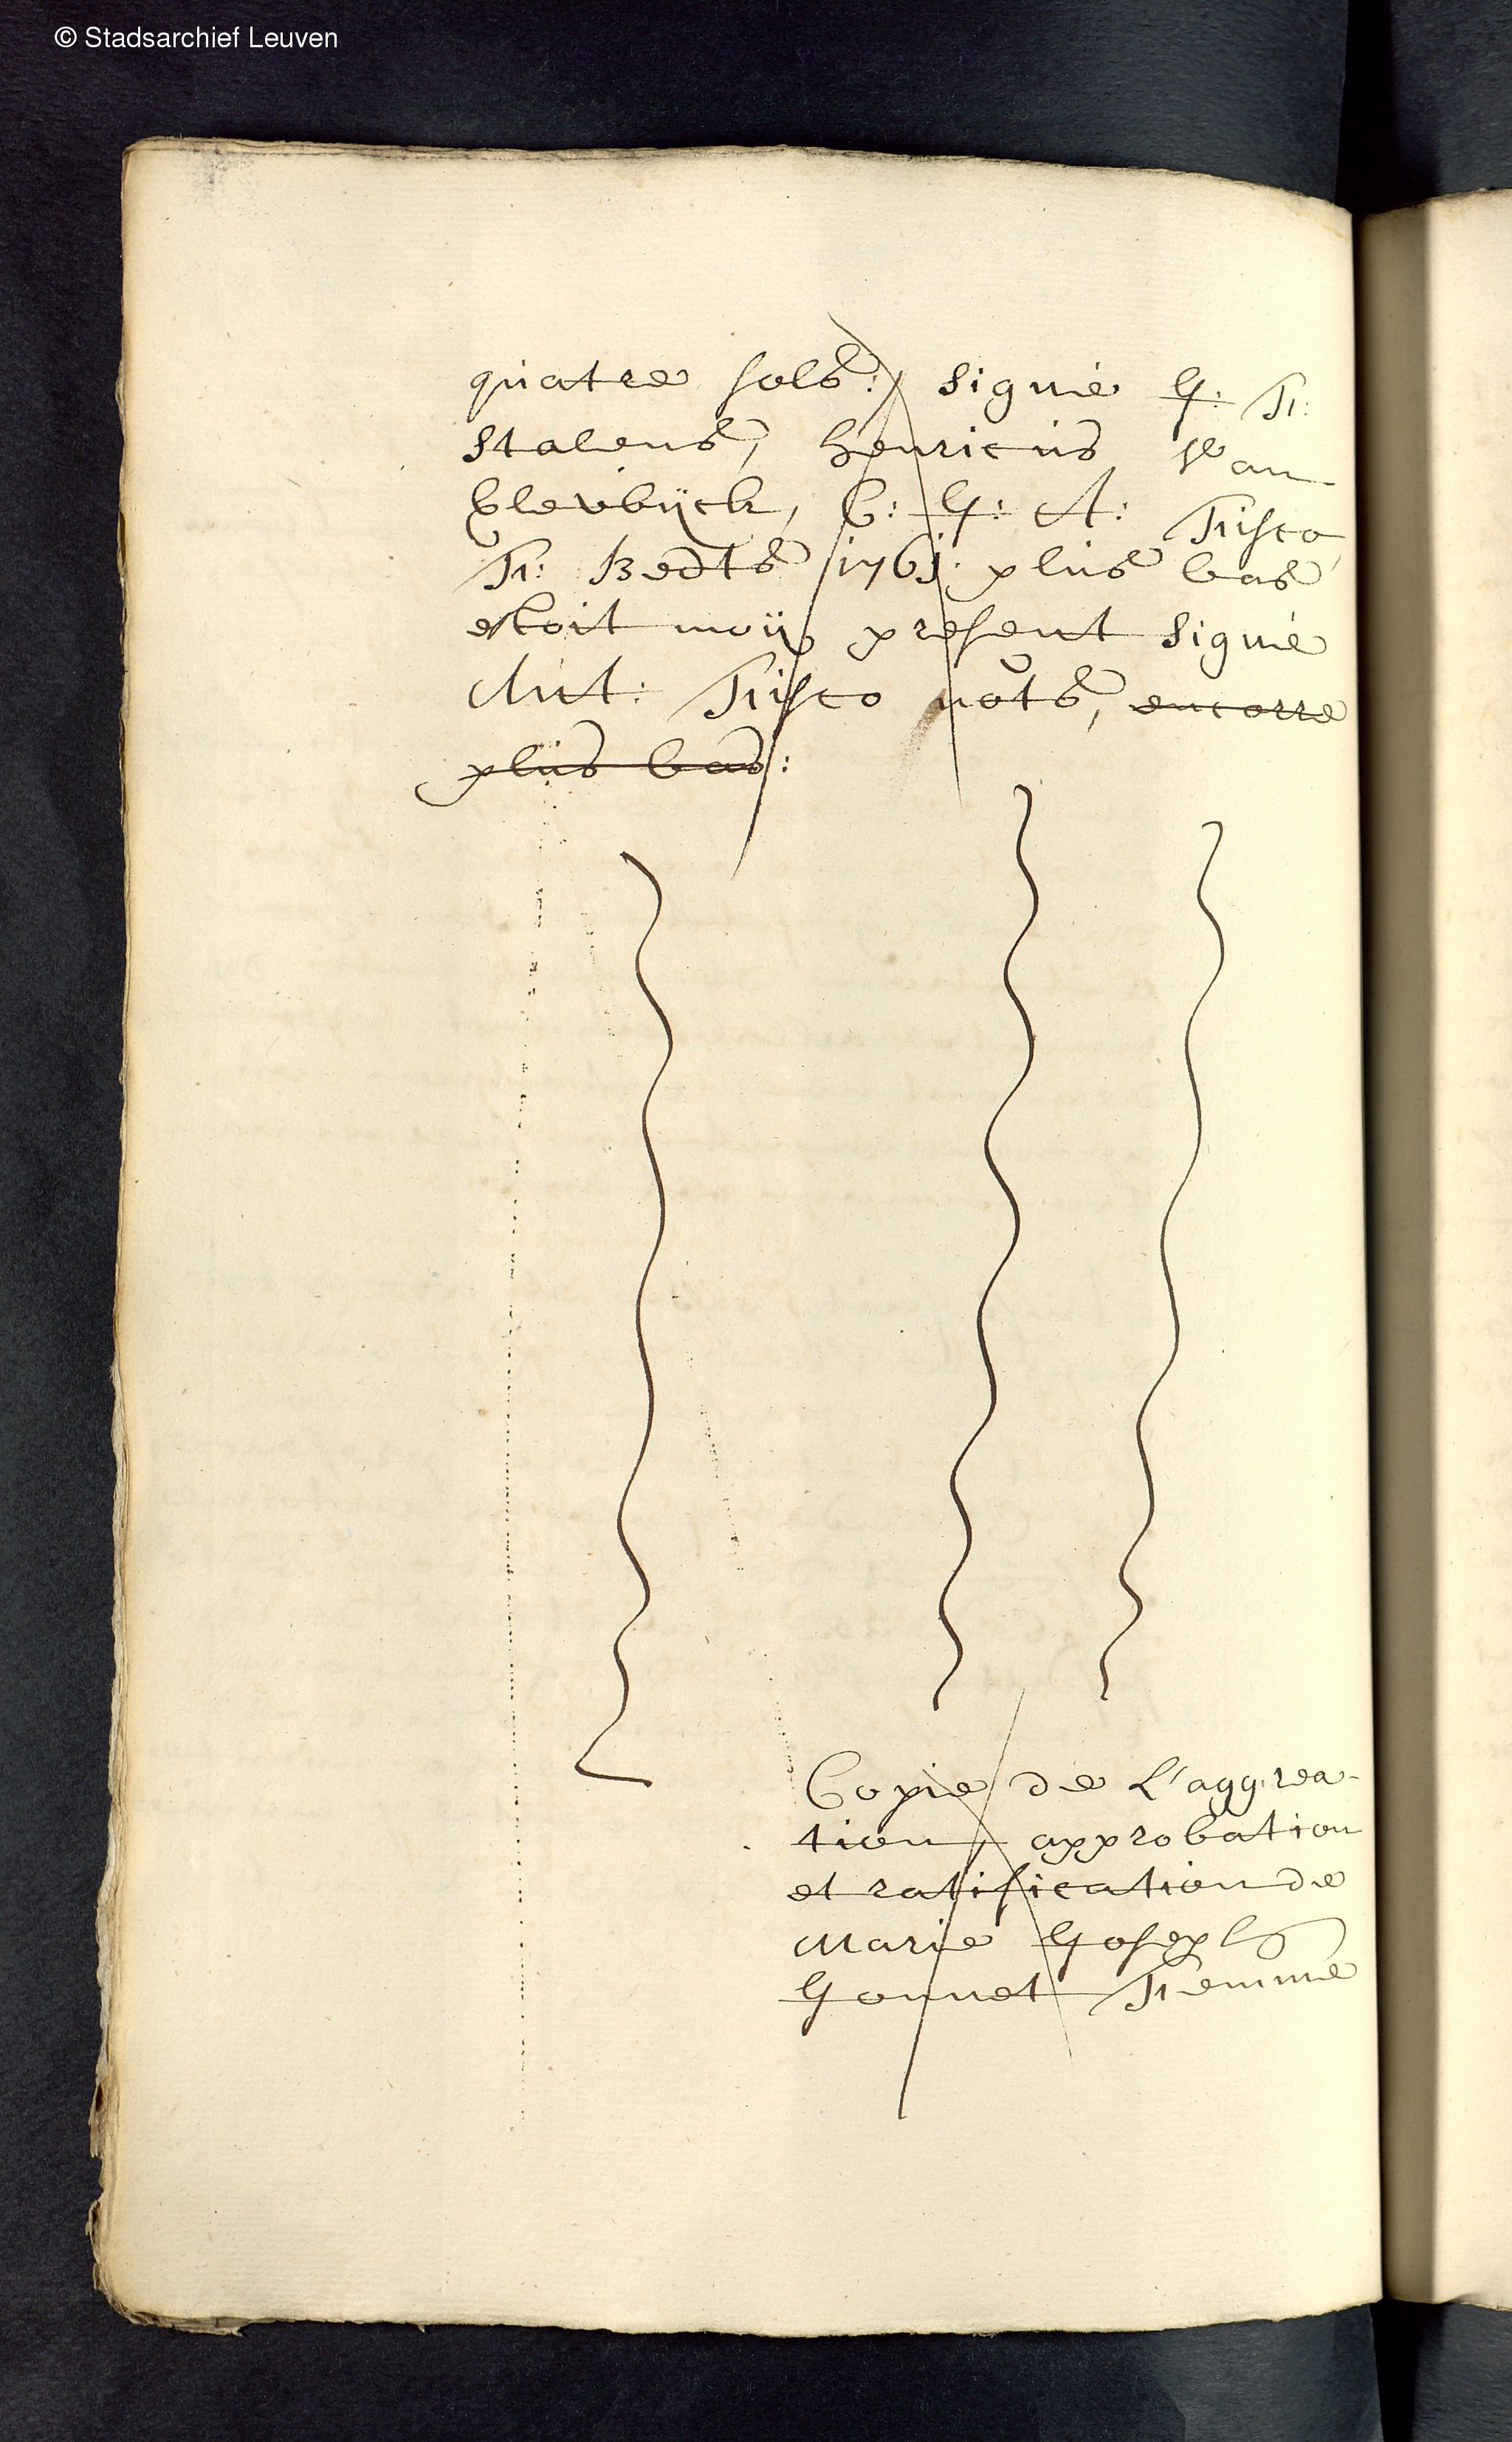 © Stadsarchief Leuven
quatre sols: signé J: F:
Stalens, henricus Van
Clevbÿck, C: J: A: Fisco
F: Bedts 1761: plus bas
estoit moÿ present signé
Ant: Fisco nots, encorre
plus bas:
Copie de L'aggrea-
tion, approbation
et ratification de
Marie Joseph
Jonnet Femme